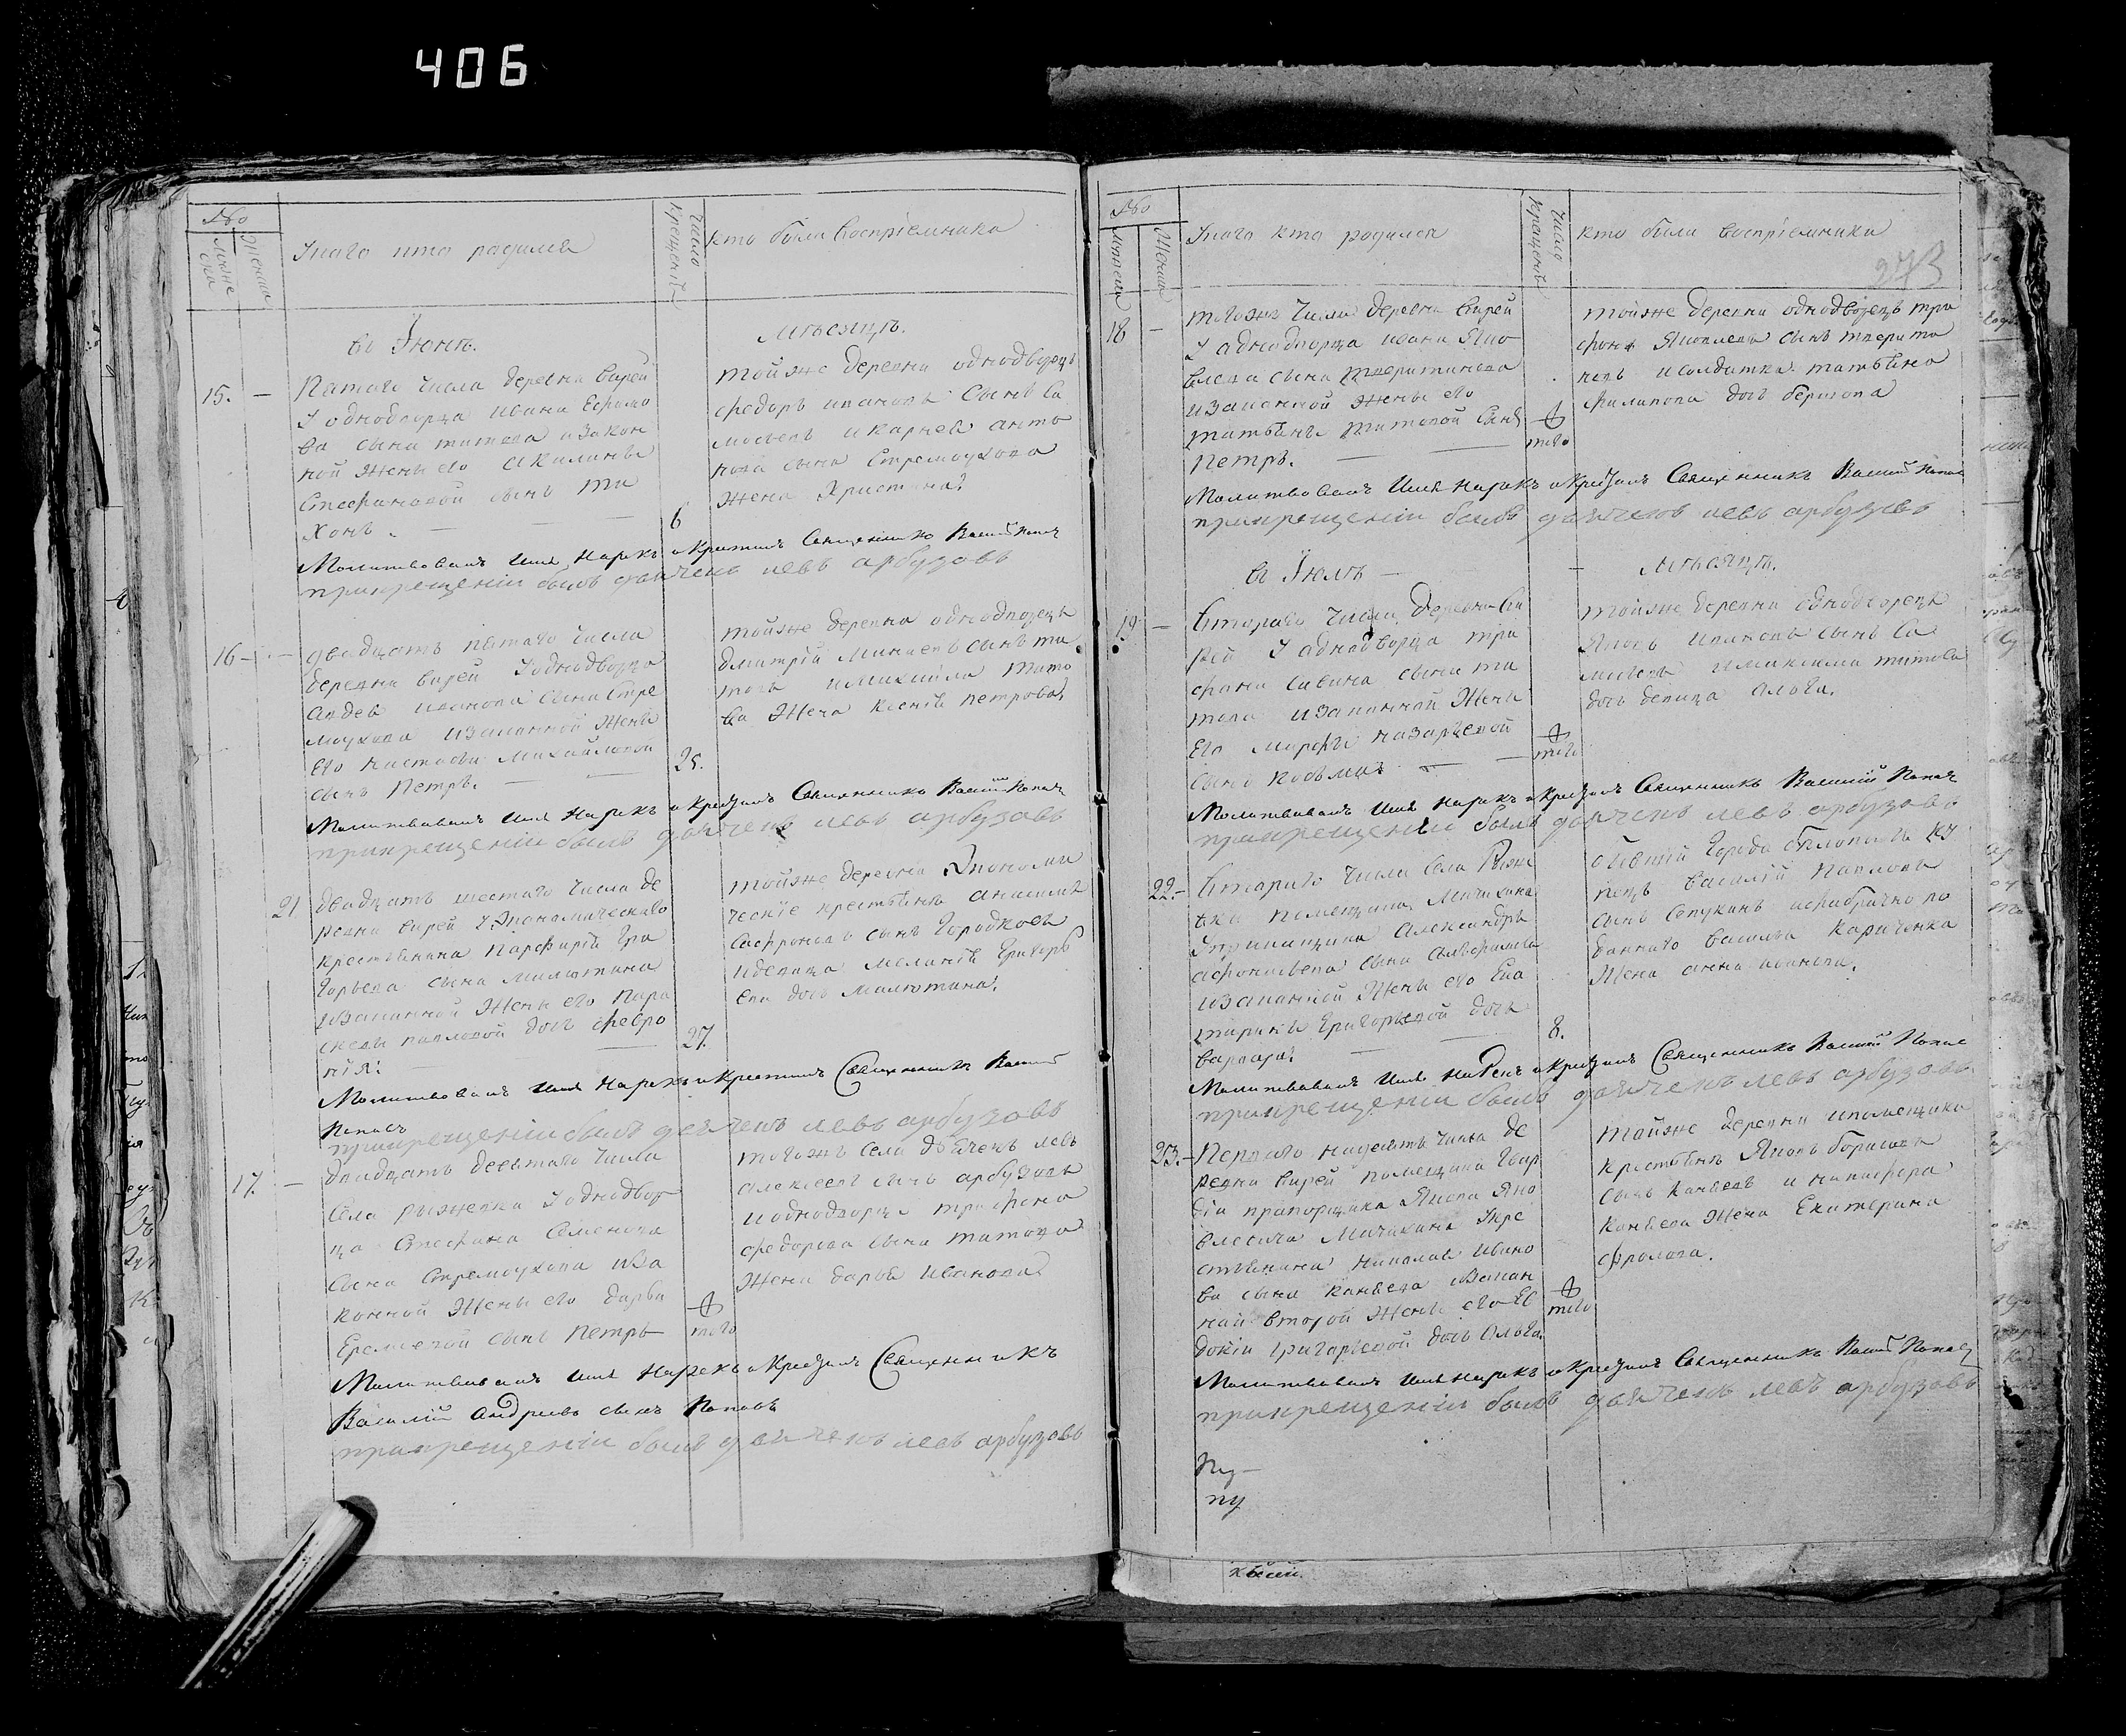 406
№
Мужеска
Женска
У кого кто родился
Число крещенія
кто были воспріемники
въ Іюнѣ.
Мѣсяцѣ.
15. —
Пятаго числа деревни Вирей
У однодворца Ивана Ефремо
ва сына Титова изакон
ной жены его Акилины
Стефановой сынъ Ти
хонъ.
6
тойже деревни однодворецъ
Федоръ Ивановъ сынъ Са
мосьевъ и Карнея Анто
нова сына Стремоухова
жена Христина.
Молитвовалъ имя нарекъ и крестилъ священникъ Василій Попов
прикрещеніи былъ дьячекъ левъ арбузовъ
16 — —
двадцать пятаго числа
деревни Вирей У однодворца
Авдея Иванова сына Стре
моухова изаконной жены
его Настасьи Михайловой
сынъ Петръ.
25.
тойже деревни однодворецъ
Дмитрій Минаевъ сынъ Ти
товъ и Михайла Тито
ва жена Ксенія Петрова.
Молитвовалъ имя нарекъ и крестилъ священникъ Василій Попов
прикрещеніи былъ дьячекъ левъ арбузовъ
21
двадцать шестаго числа де
ревни Вирей У Экономическаго
крестьянина Парфирія Гри
горьева сына Милютина
изаконной жены его Пара
скевы Павловой дочь Февро
нія.
27.
тойже деревни Экономи
ческіе крестьянинъ
Сафроновъ сынъ Городковъ
идевица Меланія Григорь
ева дочь Малютина.
Молитвовалъ имя нарекъ и крестилъ Священникъ Василій
Поповъ
прикрещеніи былъ дьячекъ левъ арбузовъ
17. —
двадцать девятаго числа
села Рыжевки У однодвор
ца Стефана Семенова
сына Стремоухова иза
конной жены его Дарьи
Еремеевой сынъ Петръ
того
тогожъ села дьячекъ левъ
Алексеевъ сынъ арбузовъ
иоднодворца Трифона
Федорова сына Титова
жена Дарья Иванова
Молитвовалъ имя нарекъ и крестилъ Священникъ
Василій Андреевъ сынъ Поповъ
прикрещеніи былъ дьячекъ левъ арбузовъ
№
Женска
У кого кто родился
Числа крещенія
кто были воспріемники
273
18 —
тогожъ числа деревни Вирей
У однодворца Ивана Яко
влева сына
изаконной жены его
Татьяны Титовой сынъ
Петръ.
того
тойже деревни однодворецъ Три
фонъ Яковлевъ сынъ
исолдатка Татьяна
Филипова дочь
Молитвовалъ имя нарекъ и крестилъ Священникъ Василій Попов
прикрещеніи былъ дьячекъ левъ арбузовъ
въ Іюлѣ —
Мѣсяцѣ.
19 —
Втораго числа деревни Ви
рей У однодворца Три
фана Савина сына Ти
това изаконной жены
его Марфы Назарьевой
сынъ Косьма.
того
тойже деревни однодворецъ
Яковъ Ивановъ сынъ Са
мосьевъ иМаксима Титова
дочь девица Ольга.
Молитвовалъ имя нарекъ и крестилъ Священникъ Василій Попов
прикрещеніи былъ дьячекъ левъ арбузовъ
22. —
Втораго числа села Рыже
вки помещика Мачихина
У Александра
Афонасьева сына
изаконной жены его Ека
терины Григорьевой дочь
Варвара.
8.
города Белополья ку
пецъ Василій Павловъ
сынъ
Василья
жена Анна Иванова.
Молитвовалъ имя нарекъ и крестилъ Священникъ Василій Попов
прикрещеніи былъ дьячекъ левъ арбузовъ
23. —
Перваго надесять числа де
ревни Вирей помещика Гвар
діи прапорщика Якова Яко
влевича Мачихина У кре
стьянина Николая Ивано
ва сына Конѣева изакон
ной второй жены его Ев
докіи Григорьевой дочь Ольга.
того
тойже деревни ипомещика
крестьянинъ Яковъ Борисовъ
сынъ Конѣевъ и Никифора
Конѣева жена Екатерина
Фролова.
Молитвовалъ имя нарекъ и крестилъ Священникъ Васил Попов
прикрещеніи былъ дьячекъ левъ арбузовъ